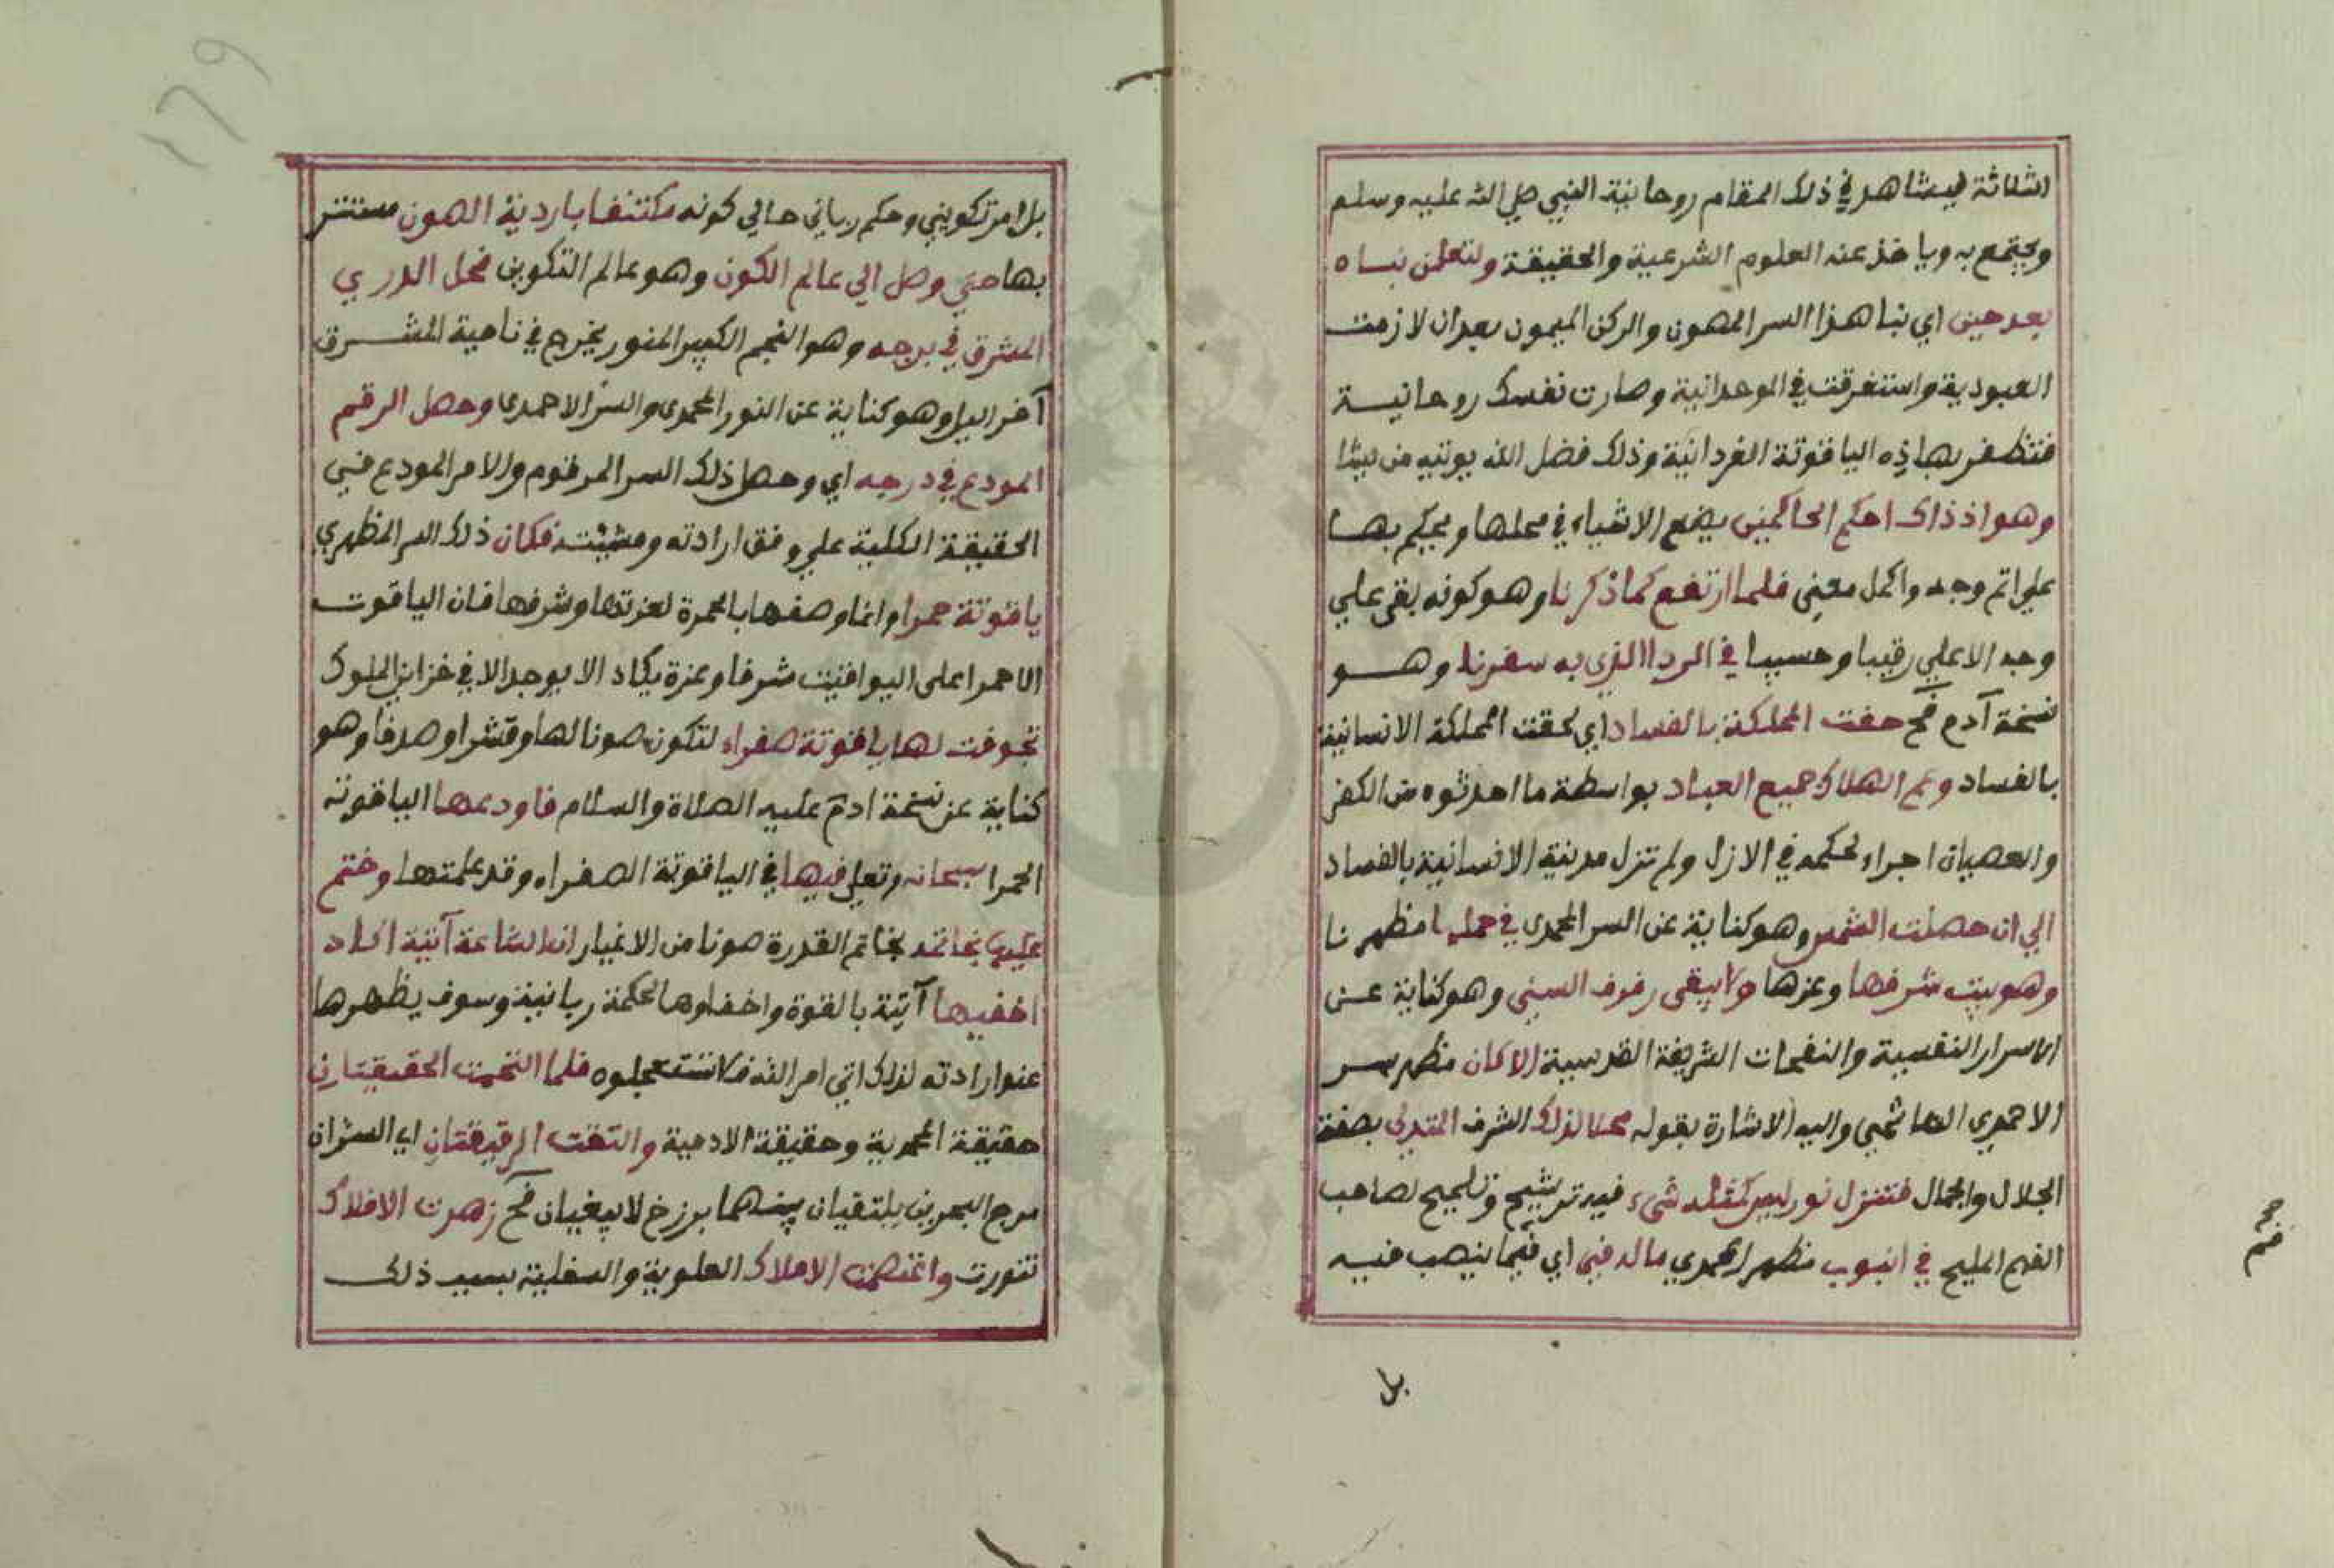 الثلاثة فيشاهد في ذلك المقام روحانية النبي صلي الله عليه وسلم
ويجتمع به وياخذ عنه العلوم الشرعية والحقيقة ولتعلمن نباه
بعد حين اي نبا هذا السر المصون والركن الميمون بعد ان لازمت
العبودية واستغرقت في الوحدانية وصارت نفسك روحانية
فتظفر بهاذه الياقوتة الفردانية وذلك فضل الله يوتيه من يشا
وهو اذ ذاك احكم الحاكمين يضع الاشياء في محلها ويحكم بها
علي اتم وجه واكمل معني فلما ارتفع كما ذكرنا وهو كونه بقي علي
وجه الاعلي رقيبا وحسيبا في الردا الذي به سفرنا وهو
نسخة آدم فح حفت المملكة بالفساد اي لحقت المملكة الانسانية
بالفساد وعم الهلاك جميع العباد بواسطة ما احدثوه من الكفر
والعصيان اجراء لحكمه في الازل ولم تزل مدينة الانسانية بالفساد
الي ان حصلت الشمس وهو كناية عن السر المحمدي في حملها مظهرنا
وهو بيت شرفها وعزها ولا يبقي رفرف السني وهو كناية عن
الاسرار النفسية والنفحات الشريفة القدسية الا كان مظهر سر
الاحمدي الهاشمي واليه الاشارة بقوله محلا لذلك الشرف المتدلي بصفة
الجلال والجمال فتنزل نور ليس كمثله شيء فيه ترشيح وتلميح لصاحب
الفهم المليح في انبوب مظهر المحمدي ماله في اي فيما ينصب فيه
بل
بل امر تكويني وحكم رباني حالي كونه مكتنفا باردية الصون مستتر
بها حتي وصل الي عالم الكون وهو عالم التكوين فحل الدري
المشرق في برجه وهو النجم الكبير المنور يخرج في ناحية المشرق
آخر اليل وهو كناية عن النور المحمدي والسر الاحمدي وحصل الرقم
المودع في درجه اي وحصل ذلك السر المرقوم والامر المودع في
الحقيقة الكلية علي وفق ارادته ومشيئته فكان ذلك السر المظهري
ياقوتة حمرا وانما وصفها بالحمرة لعزتها وشرفها فان الياقوت
الاحمر اعلي اليواقيت شرفا وعزة يكاد الا يوجد الا في خزاين الملوك
تجوفت لها ياقوتة صفراء لتكون صونا لها وقشرا وصدفا وهو
كناية عن نسخة ادم عليه الصلاة والسلام فاودعها الياقوتة
الحمرا سبحانه وتعلي فيها في الياقوتة الصفراء وقد علمتها وختم
عليها بخاتمه بخاتم القدرة صونا من الاغيار ان الساعة آتية اكاد
اخفيها آتية بالقوة واخفاوها لحكمة ربانية وسوف يظهرها
عنوا رادته لذلك اتي امر الله فلا تستعجلوه فلما التحمت الحقيقتان
حقيقة المحمدية وحقيقة الادمية والتفت الرقيقتان اي السران
مرج البحرين يلتقيان بينهما برزخ لا يبغيان فح زهرت الافلاك
تنورت وانتظمت الاملاك العلوية والسفلية بسبب ذلك